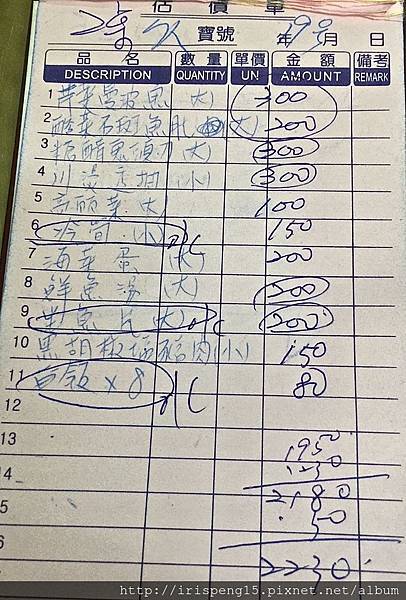 估價單
寶號 19号
年 月 日
品名 數量 單價 金額 備考
DESCRIPTION QUANTITY UN. AMOUNT REMARK
1 (大) 300
2 酸菜石斑魚肚 (大) 200
3 糖醋魚 (大) 300
4 川燙 (小) 300
5 高麗菜 (大) 100
6 冷筍 (小) 150
7 海菜蛋 (大) 200
8 鮮魚湯 (大) 200
9 魚片 (大) 200
10 黑胡椒 豬肉 (小) 150
11 白飯 x 8 80
12
13 1950
14 1230
5 2180
50
6 2230
http://irispeng15.pixnet.net/album